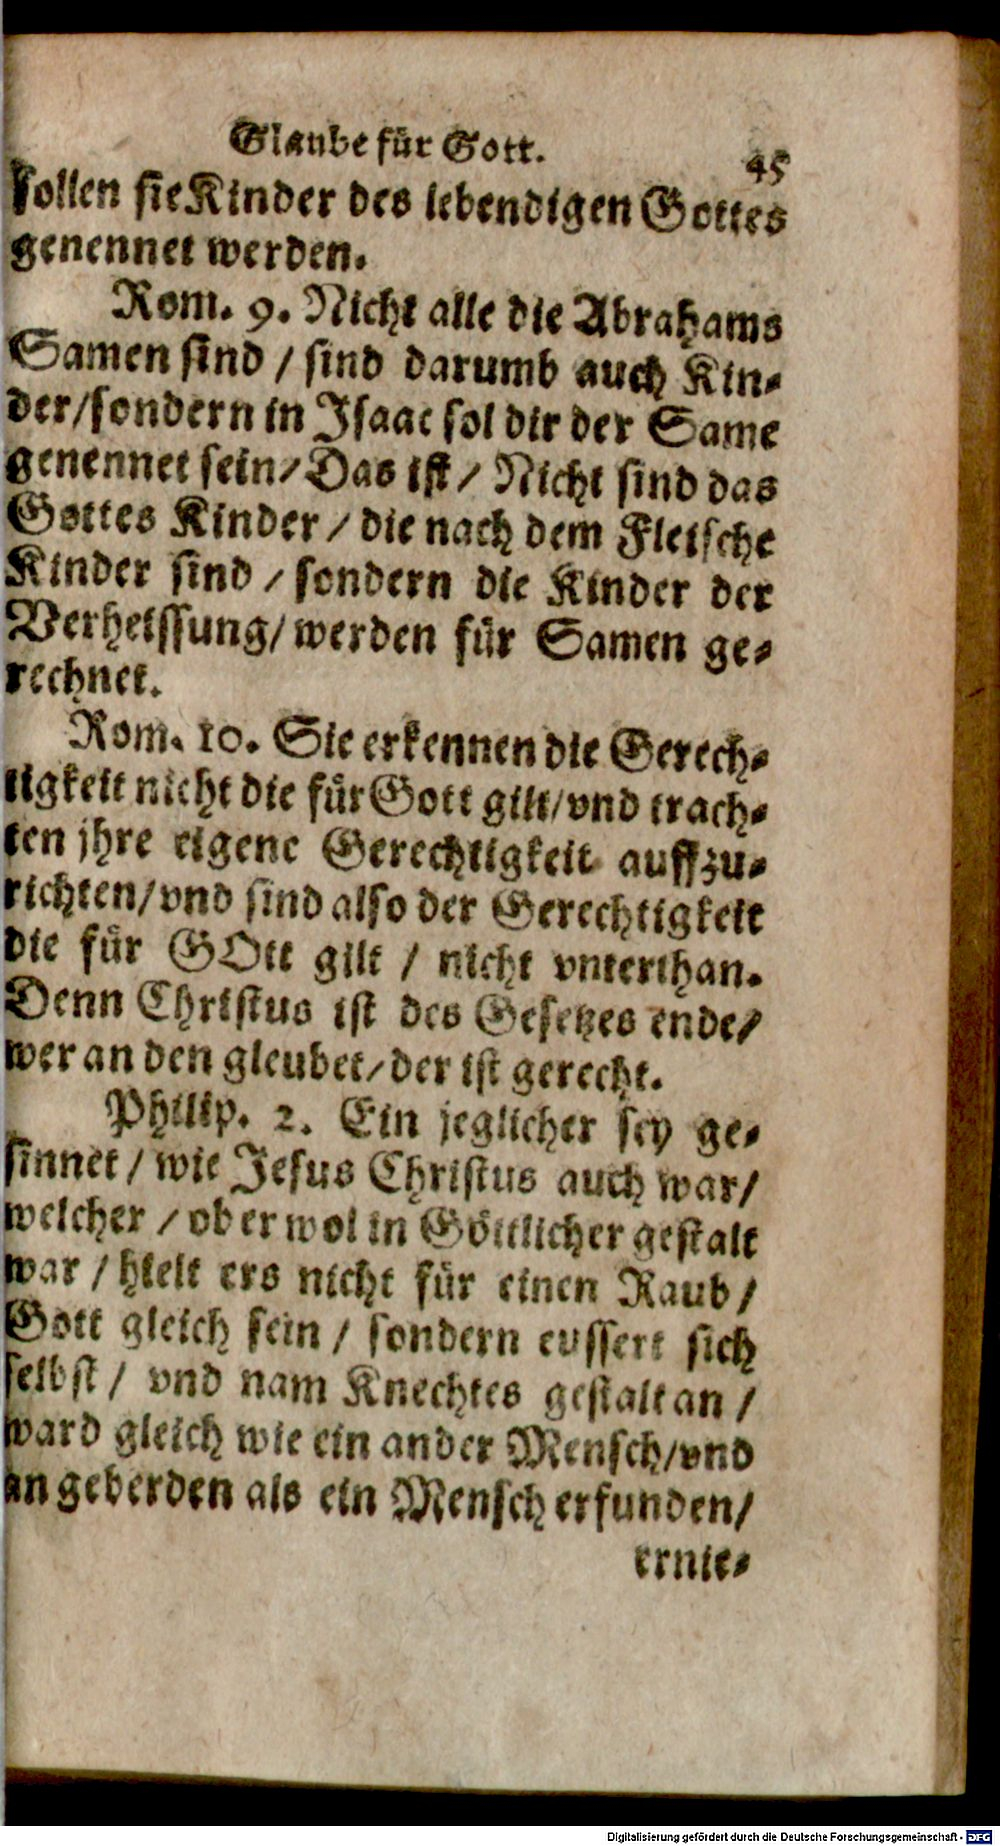 Glaube für Gott.
45
sollen sie Kinder des lebendigen Gottes
genennet werden.
Rom. 9. Nicht alle die Abrahams
Samen sind / sind darumb auch Kin-
der/sondern in Isaac sol dir der Same
genennet sein/Das ist / Nicht sind das
Gottes Kinder / die nach dem Fleische
Kinder sind / sondern die Kinder der
Verheissung/ werden für Samen ge-
rechnet.
Rom. 10. Sie erkennen die Gerech-
tigkeit nicht die für Gott gilt/vnd trach-
ten jhre eigene Gerechtigkeit auffzu-
richten/vnd sind also der Gerechtigkeit
die für GOtt gilt / nicht vnterthan.
Denn Christus ist des Gesetzes ende/
wer an den gleubet/der ist gerecht.
Philip. 2. Ein jeglicher sey ge-
sinnet / wie Jesus Christus auch war/
welcher / ob er wol in Göttlicher gestalt
war / hielt ers nicht für einen Raub /
Gott gleich sein / sondern eussert sich
selbst / vnd nam Knechtes gestalt an /
ward gleich wie ein ander Mensch/vnd
an geberden als ein Mensch erfunden/
ernie-
Digitalisierung gefördert durch die Deutsche Forschungsgemeinschaft - DFG